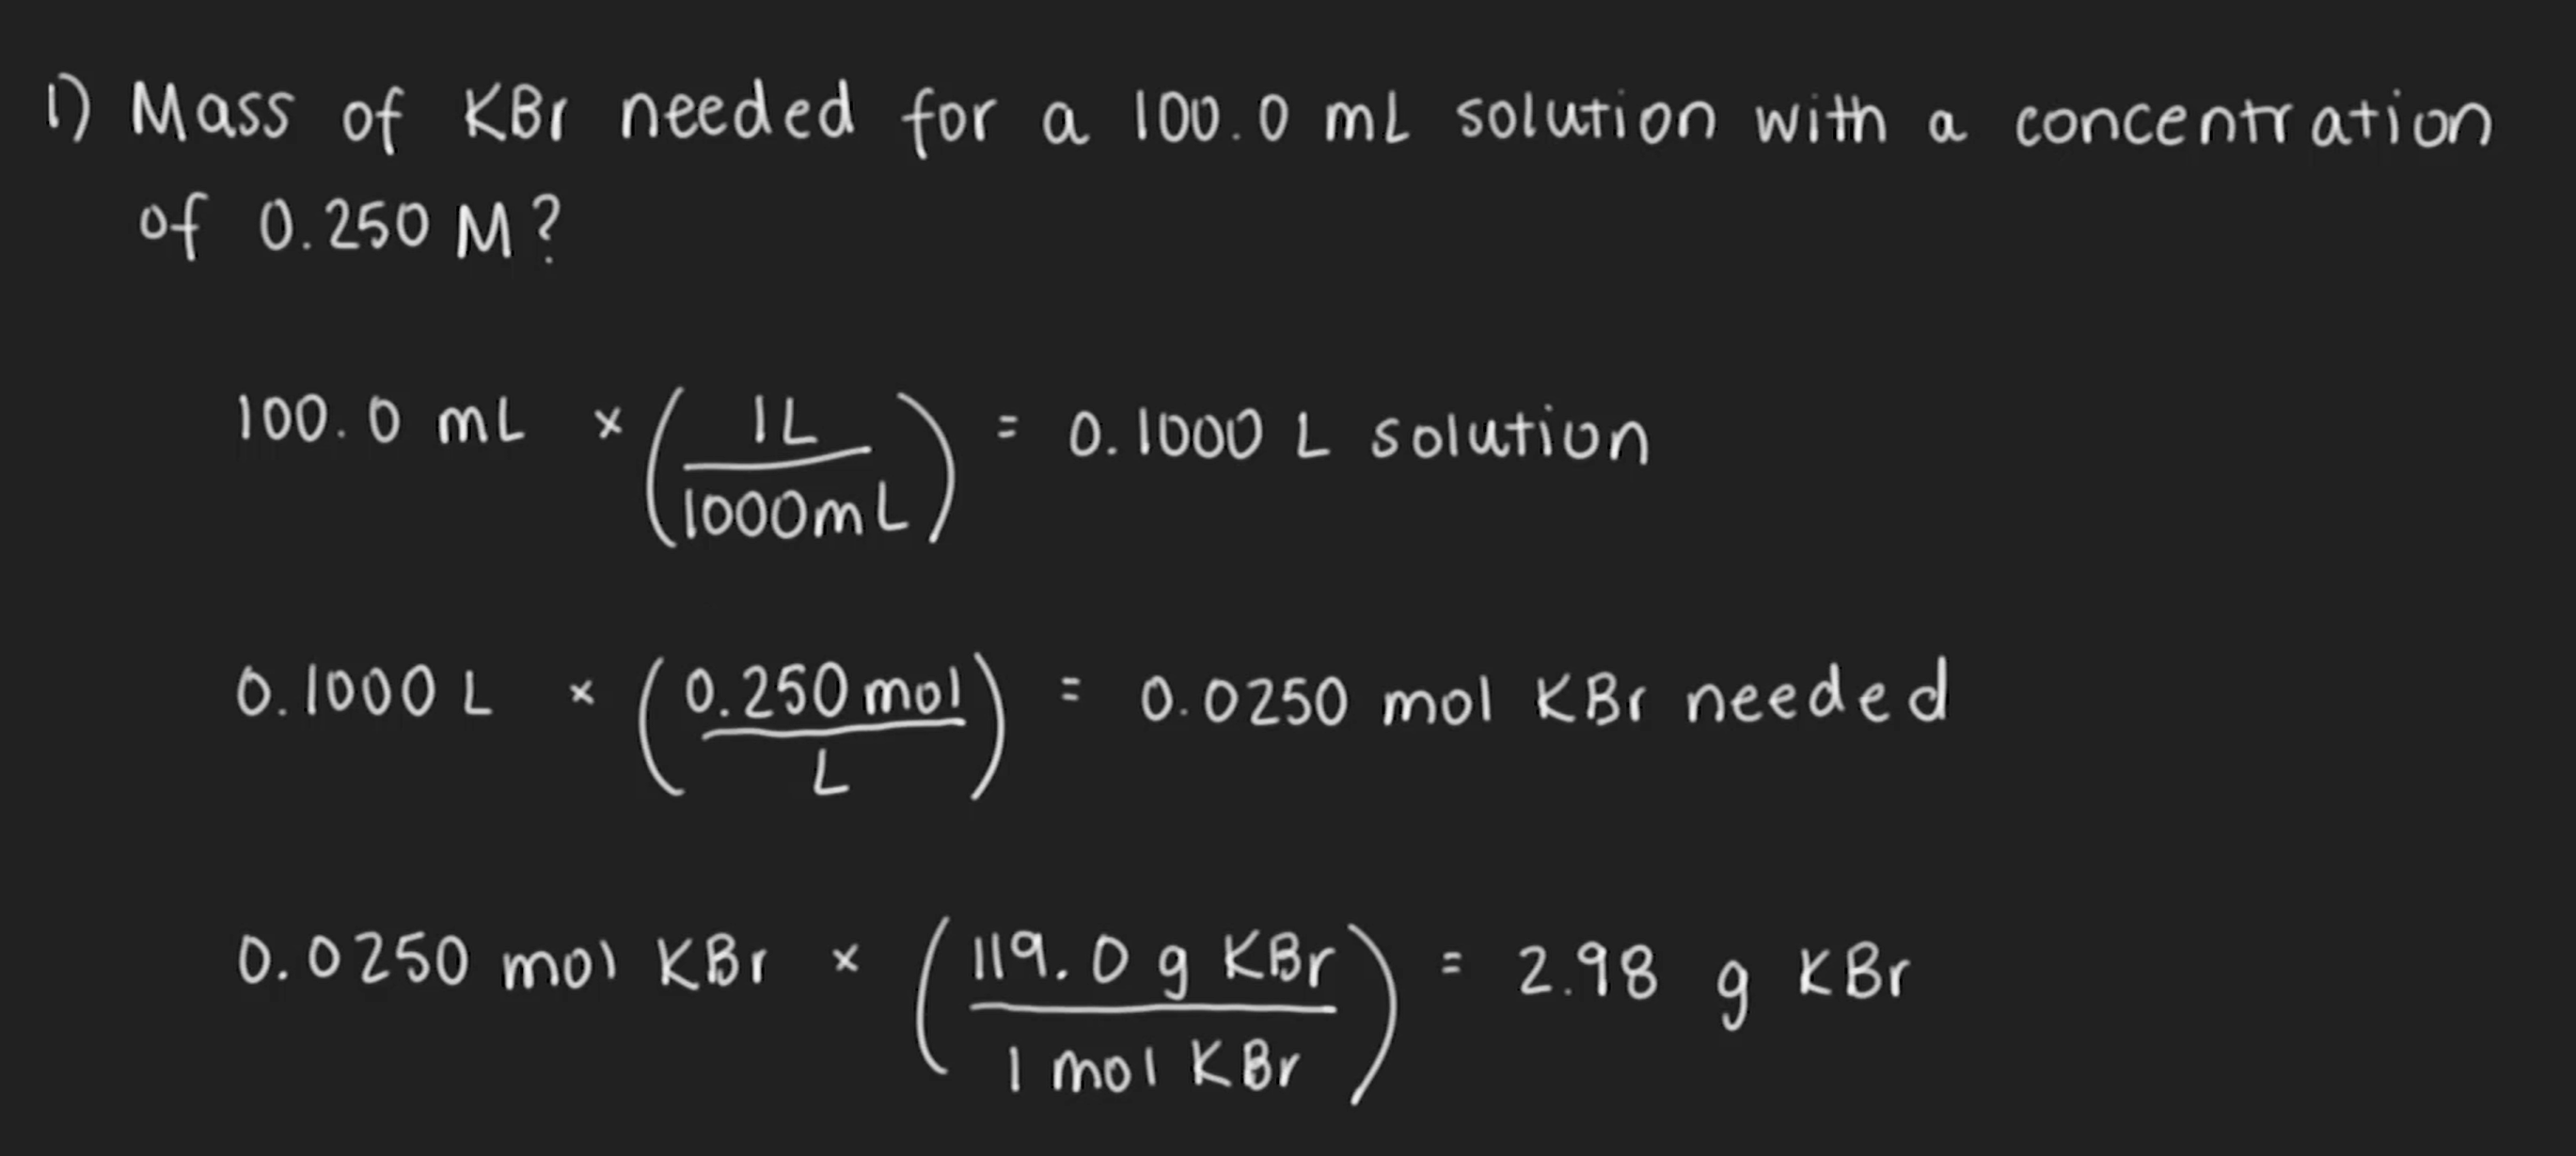 1) Mass of KBr needed for a 100.0 mL solution with a concentration
of 0.250 M?
100.0 mL × (1L / 1000mL) = 0.1000 L solution
0.1000 L × (0.250 mol / L) = 0.0250 mol KBr needed
0.0250 mol KBr × (119.0 g KBr / 1 mol KBr) = 2.98 g KBr